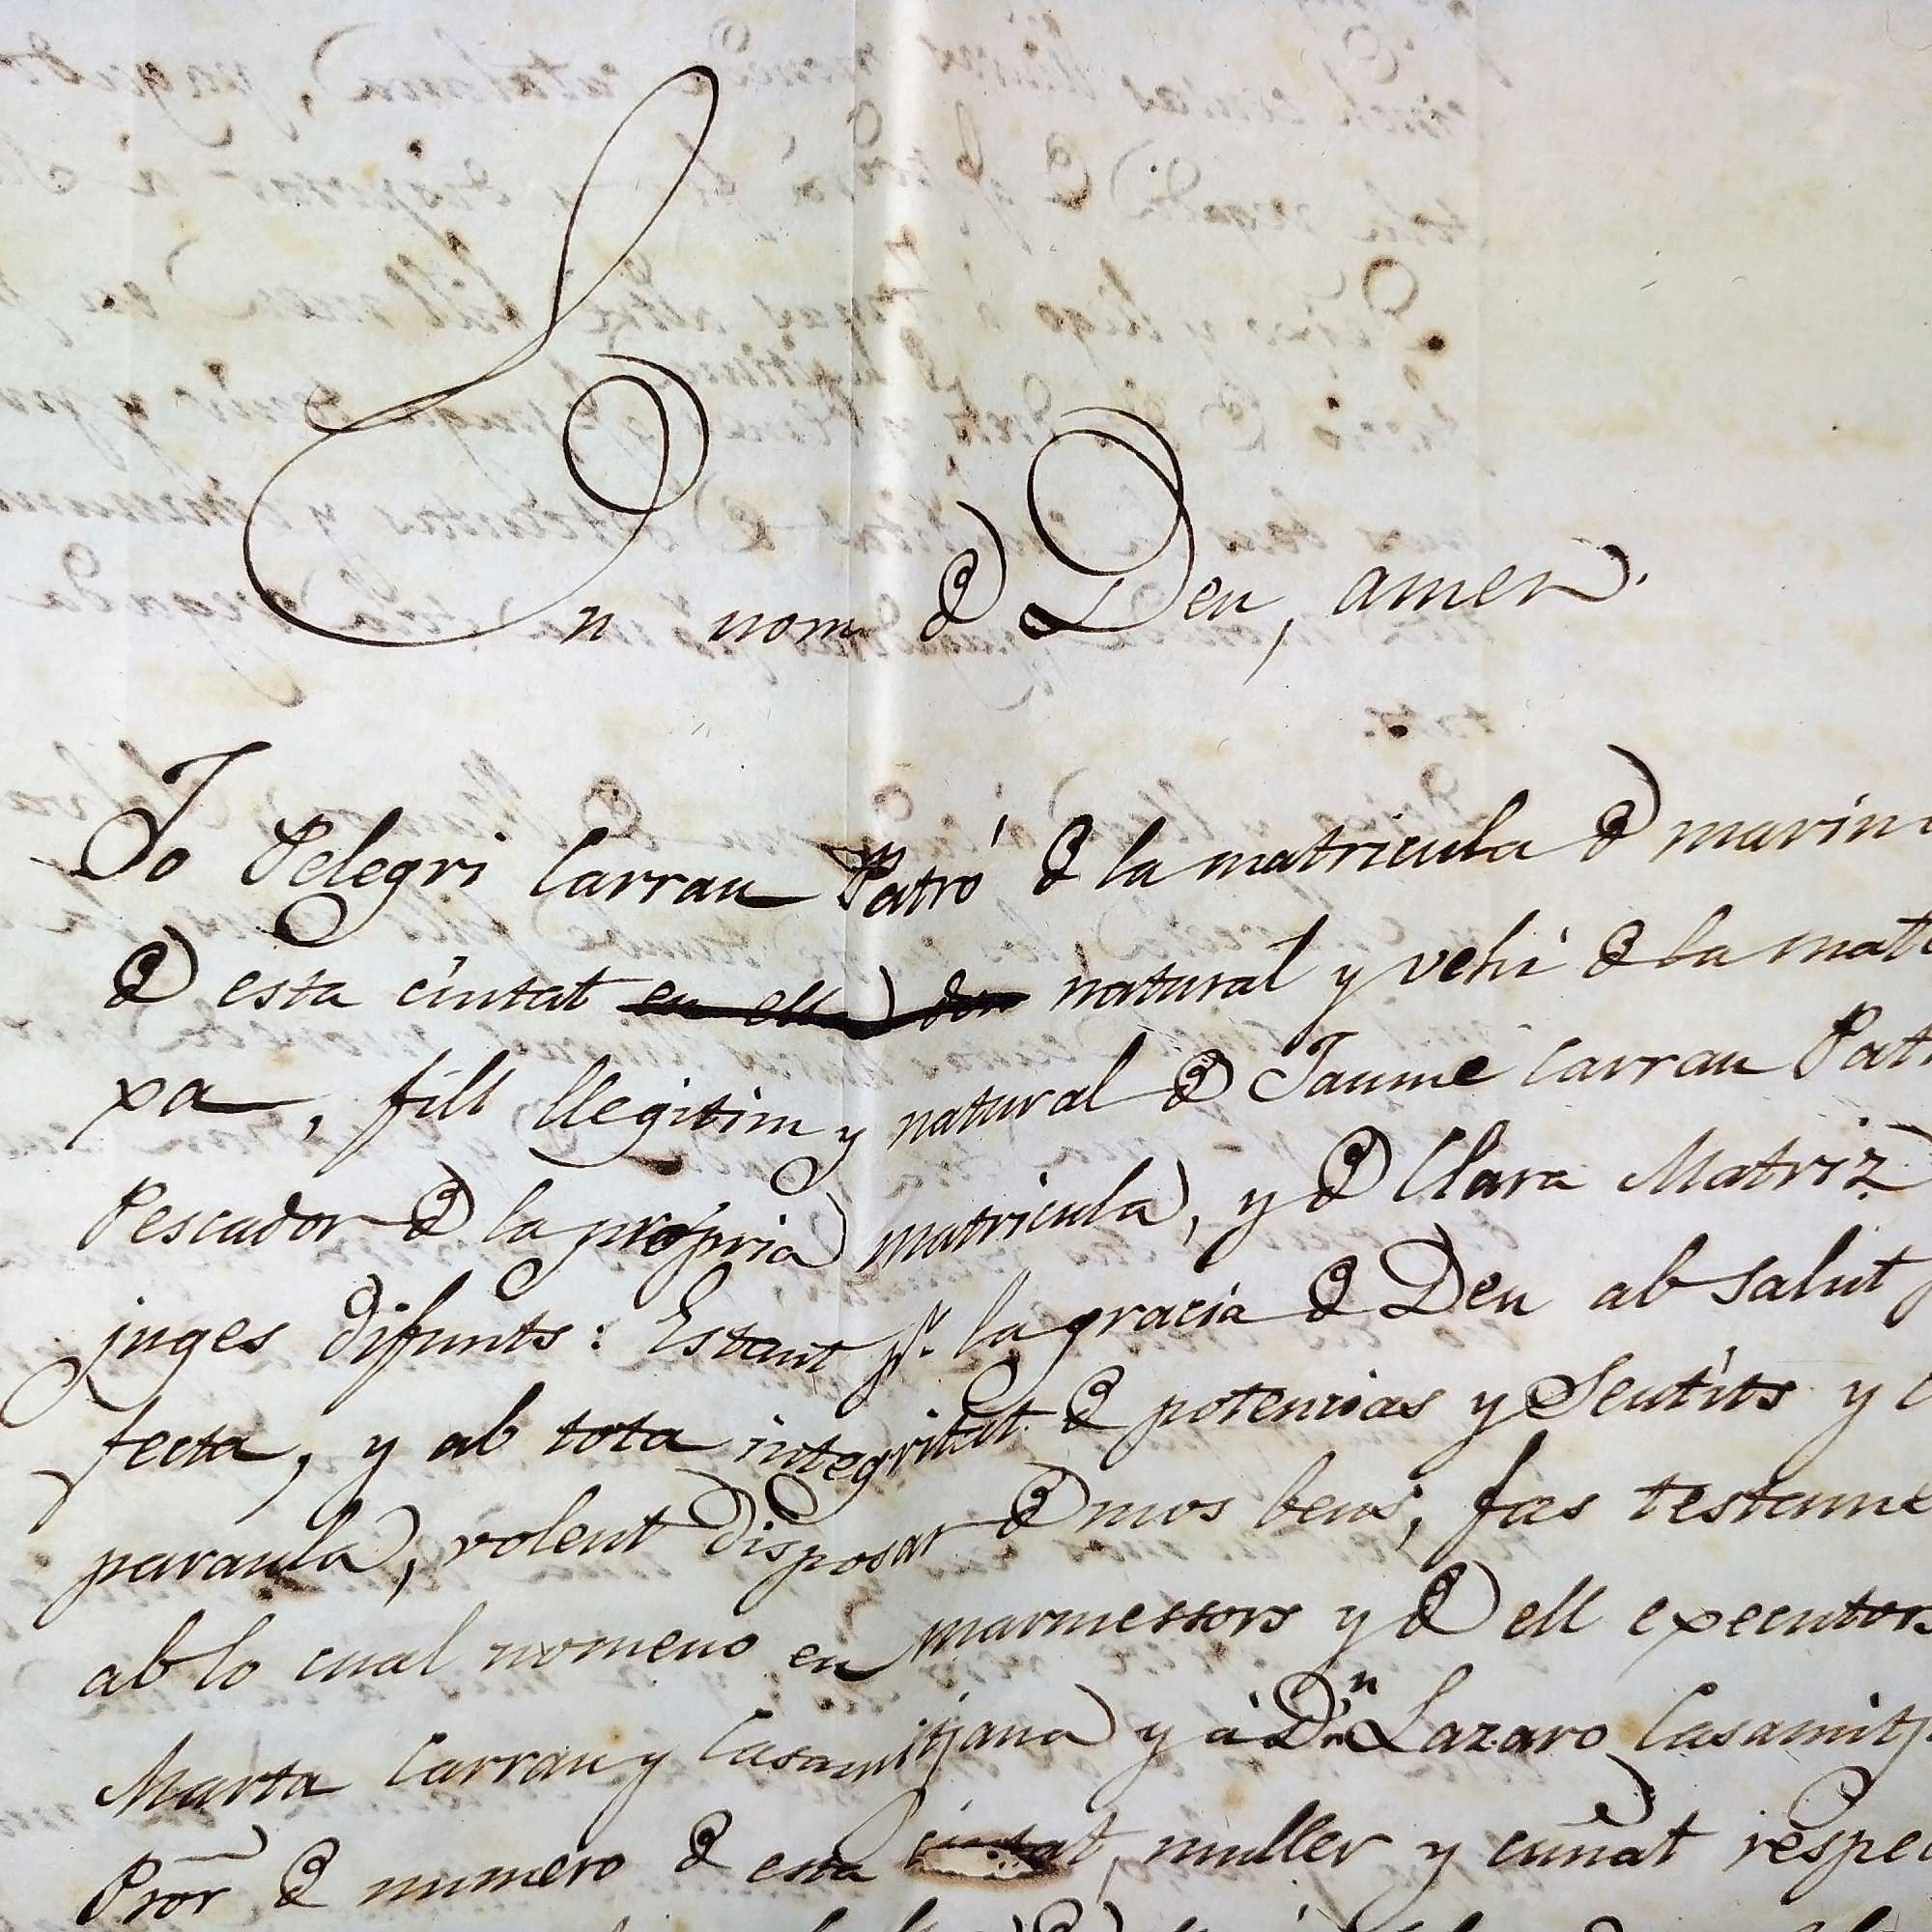 En nom de Deu, amen.
Jo Pelegri Carrau Patró de la matricula de marin
de esta ciutat en ella don natural y vehi de la mate
xa, fill llegitim y natural de Jaume Carrau Pat
Pescador de la propria matricula, y de Clara Matriz
juges difunts: Estant pr. la gracia de Deu ab salut p
fecta, y ab tota integritat de potencias y Sentits y
paraula, volent disposar de mos bens, fas testame
ab lo cual nomeno en marmessors y de ell executors
Marta Carrau y Casamitjana y á Dn. Lazaro Casamitj
Pror de numero de esta ciutat, muller y cuñat respec